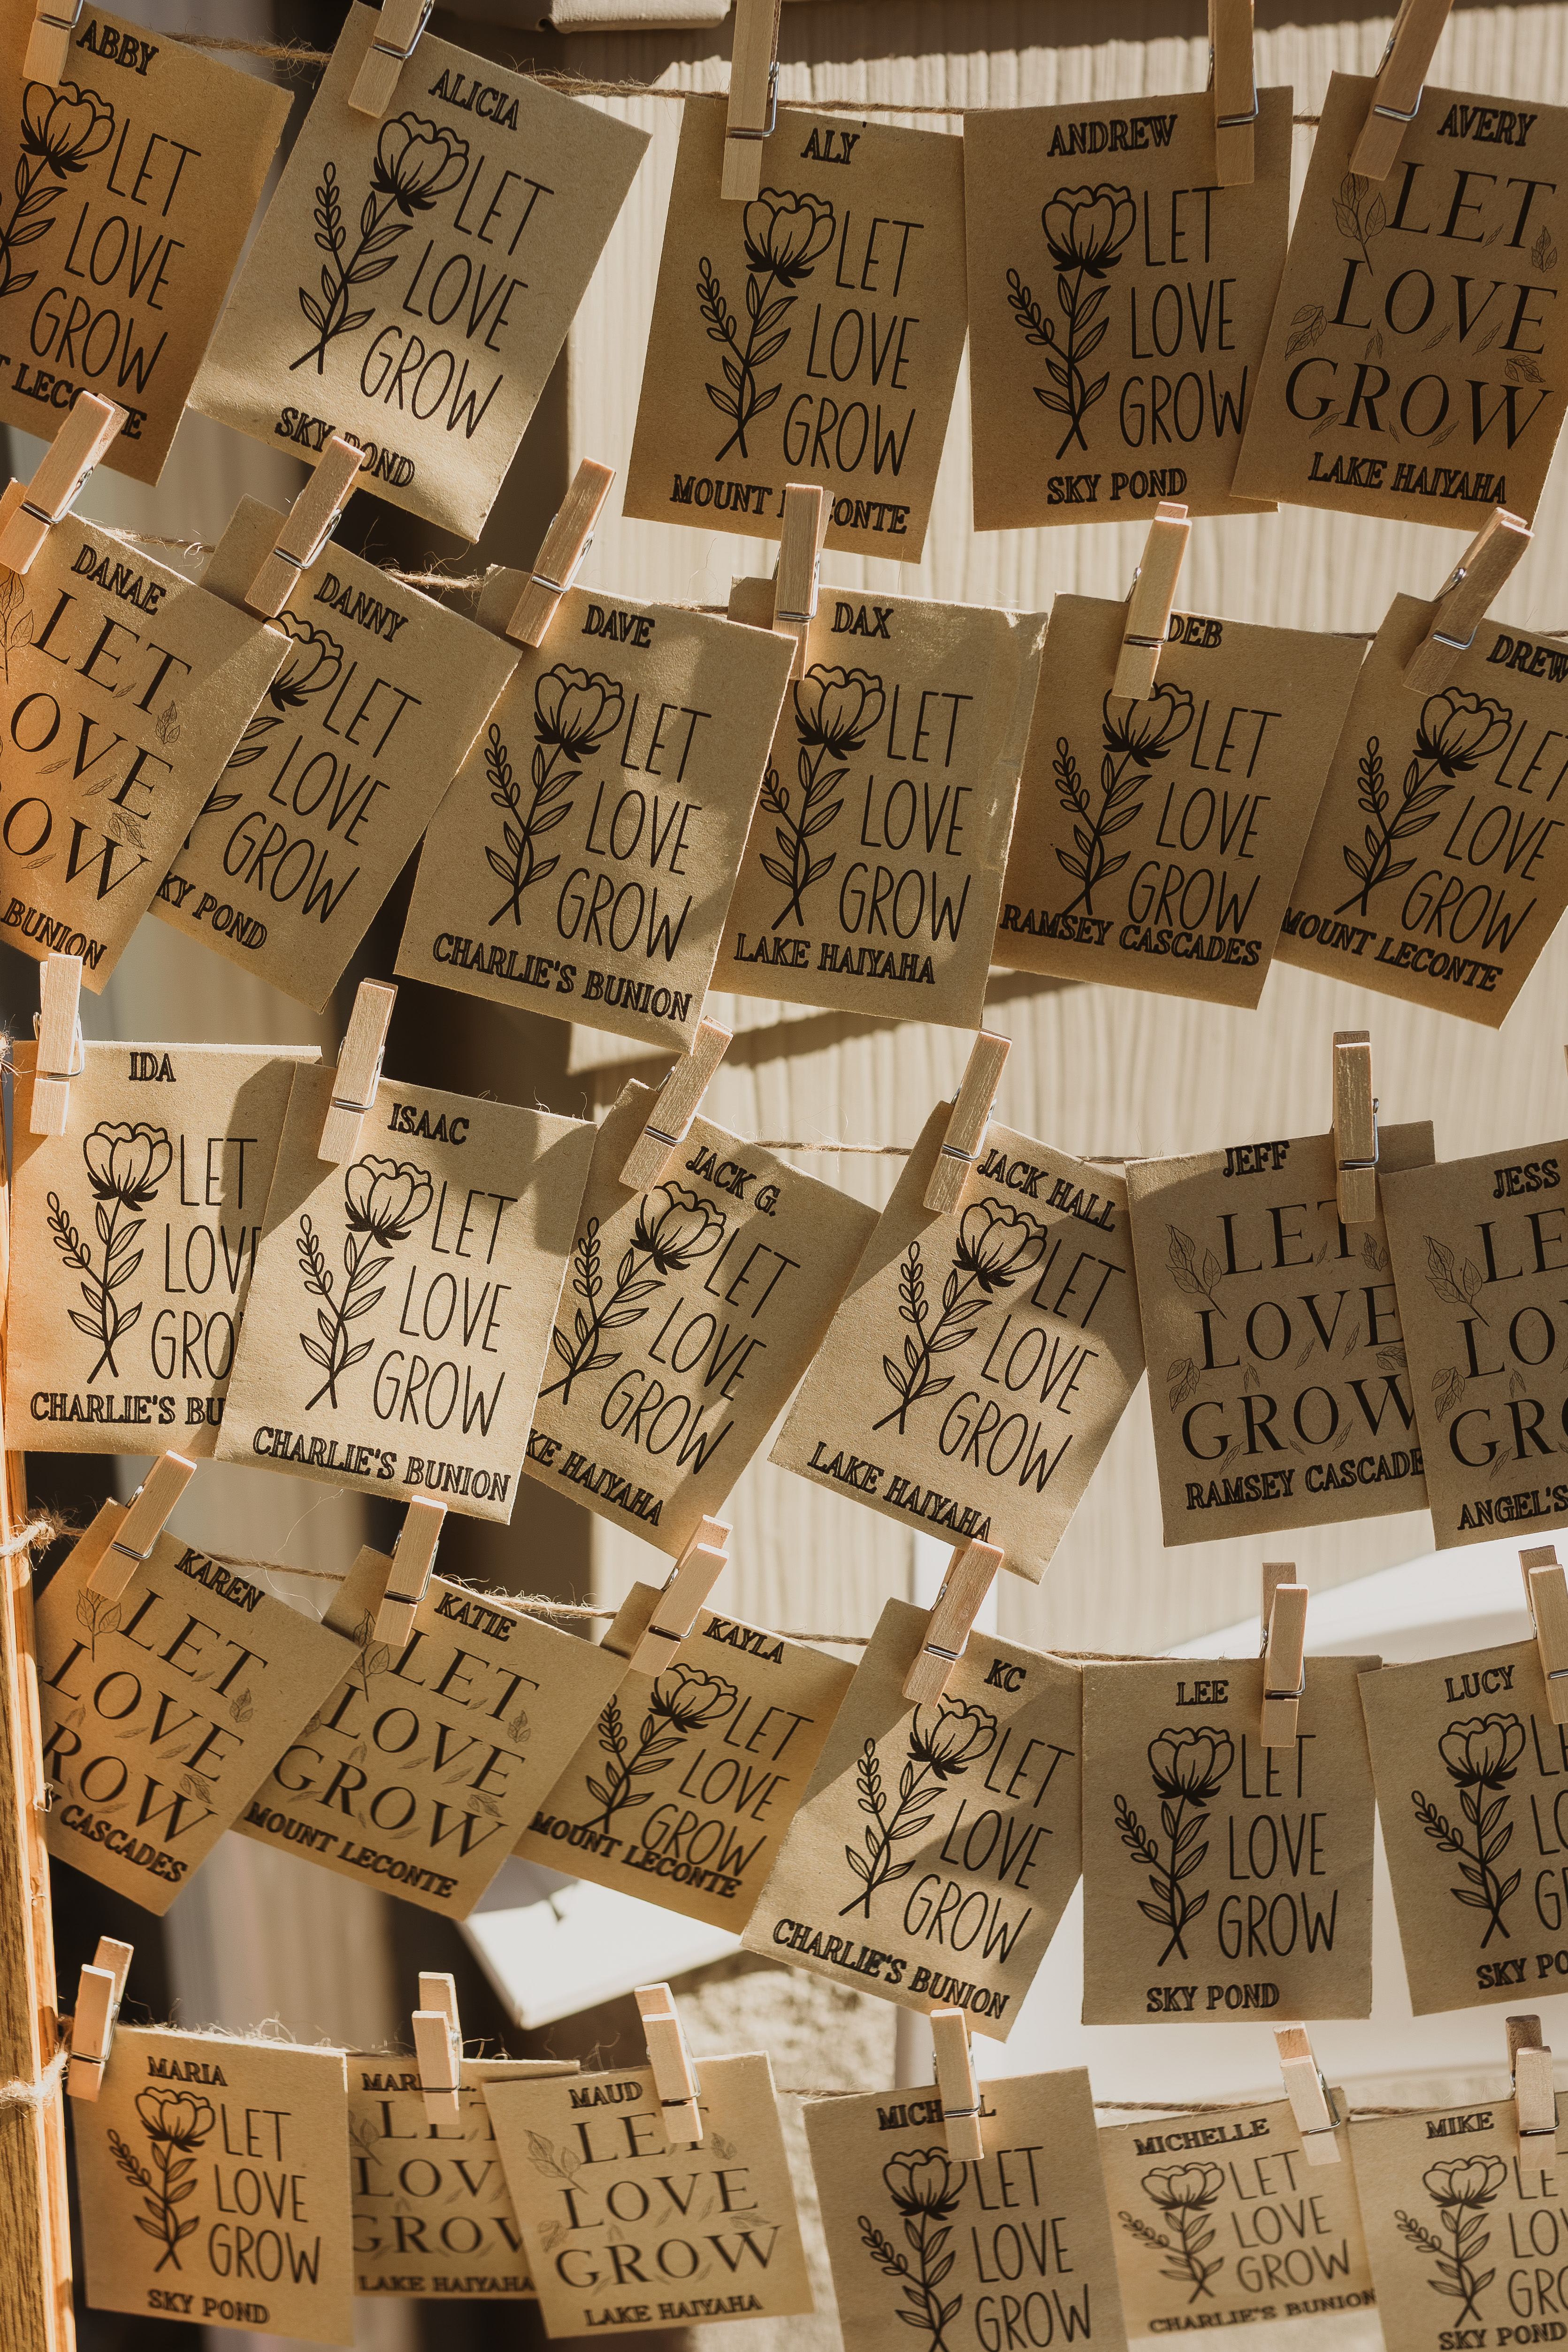 ABBY
LET
LOVE
GROW
ALICIA
LET
LOVE
GROW
SKY POND
ALY
LET
LOVE
GROW
MOUNT
ANDREW
LET
LOVE
GROW
SKY POND
AVERY
LET
LOVE
GROW
LAKE HAIYAHA
DANAE
LET
OVE
OW
BUNION
DANNY
LET
LOVE
GROW
KY POND
DAVE
LET
LOVE
GROW
CHARLIE'S BUNION
DAX
LET
LOVE
GROW
LAKE HAIYAHA
DEB
LET
LOVE
GROW
RAMSEY CASCADES
DREW
LET
LOVE
GROW
MOUNT LECONTE
IDA
LET
LOV
GRO
CHARLIE'S BU
ISAAC
LET
LOVE
GROW
CHARLIE'S BUNION
JACK G.
LET
LOVE
GROW
KE HAIYAHA
JACK HALL
LET
LOVE
GROW
LAKE HAIYAHA
JEFF
LET
LOVE
GROW
RAMSEY CASCADE
JESS
LE
LO
GRO
ANGEL'S
KAREN
LET
LOVE
ROW
Y CASCADES
KATIE
LET
LOVE
GROW
MOUNT LECONTE
KAYLA
LET
LOVE
GROW
MOUNT LECONTE
KC
LET
LOVE
GROW
CHARLIE'S BUNION
LEE
LET
LOVE
GROW
SKY POND
LUCY
LE
LO
G
SKY PO
MARIA
LET
LOVE
GROW
SKY POND
LET
LOV
GROW
LAKE HAIYAHA
MAUD
LET
LOVE
GROW
LAKE HAIYAHA
LET
LOVE
GROW
MICHELLE
LET
LOVE
GROW
CHARLIE'S BUNION
MIKE
LE
LOV
GRO
SKY POND